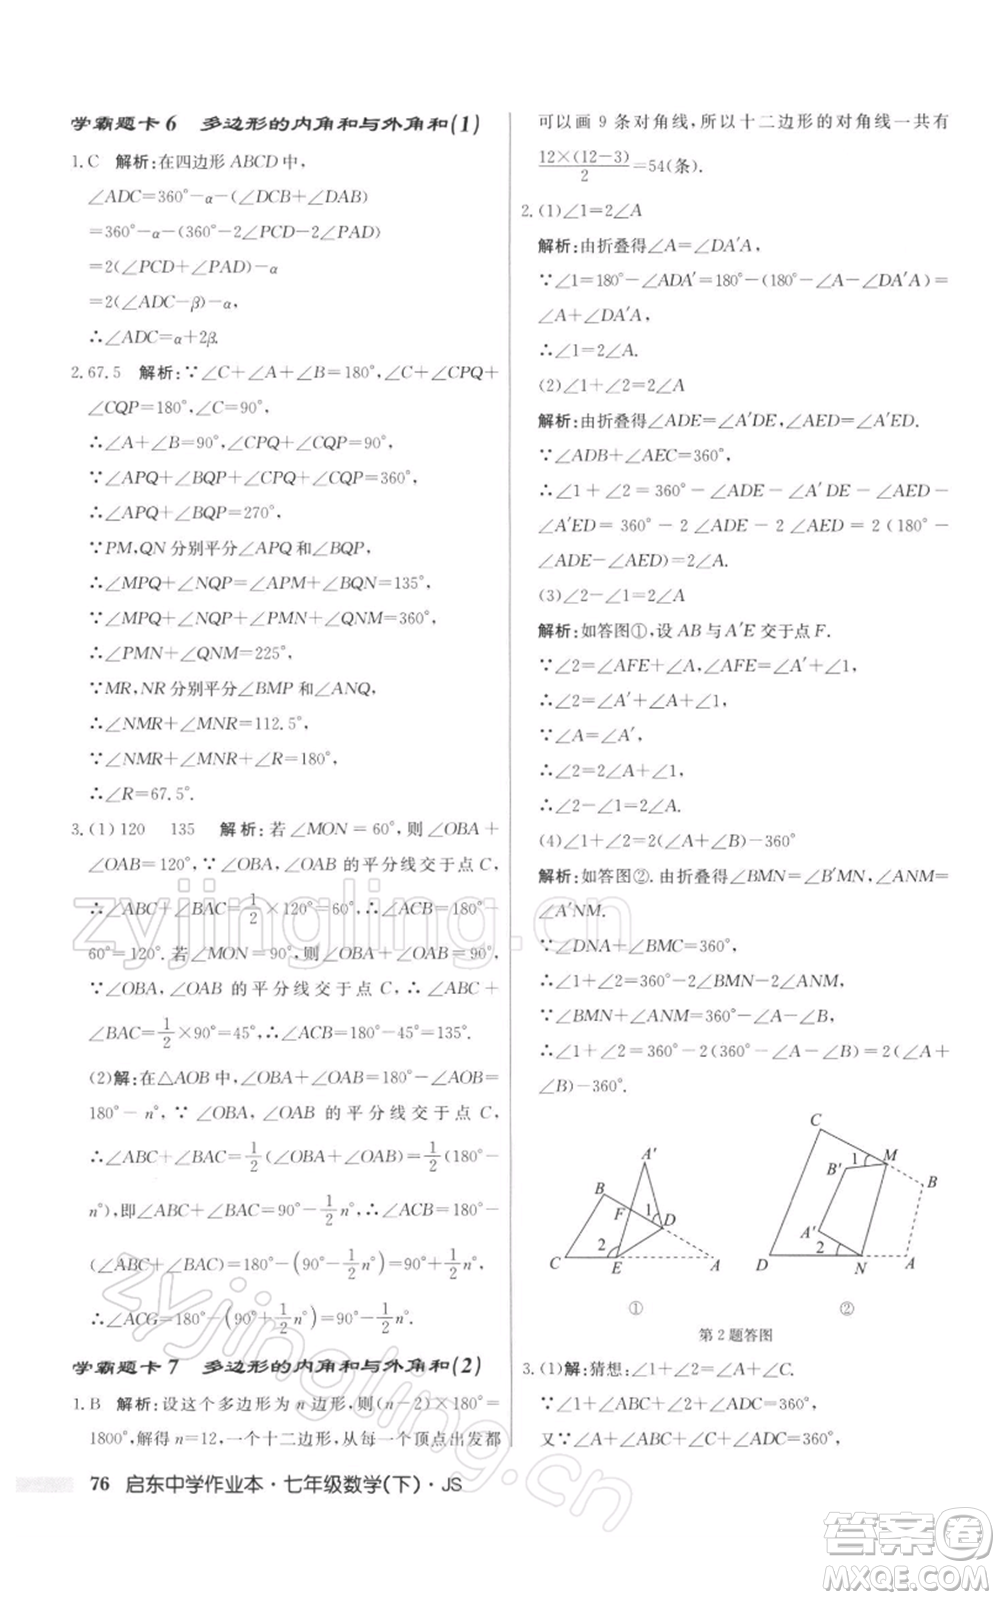 学霸题卡 6 多边形的内角和与外角和(1)
1.C 解析:在四边形 ABCD 中,
∠ADC=360°-α-(∠DCB+∠DAB)
=360°-α-(360°-2∠PCD-2∠PAD)
=2(∠PCD+∠PAD)-α
=2(∠ADC-β)-α,
∴∠ADC=α+2β.
2.67.5 解析:∵∠C+∠A+∠B=180°,∠C+∠CPQ+
∠CQP=180°,∠C=90°,
∴∠A+∠B=90°,∠CPQ+∠CQP=90°,
∵∠APQ+∠BQP+∠CPQ+∠CQP=360°,
∴∠APQ+∠BQP=270°,
∵PM,QN 分别平分∠APQ 和∠BQP,
∴∠MPQ+∠NQP=∠APM+∠BQN=135°,
∵∠MPQ+∠NQP+∠PMN+∠QNM=360°,
∴∠PMN+∠QNM=225°,
∵MR,NR 分别平分∠BMP 和∠ANQ,
∴∠NMR+∠MNR=112.5°,
∵∠NMR+∠MNR+∠R=180°,
∴∠R=67.5°.
3.(1)120 135 解析:若∠MON=60°,则∠OBA+
∠OAB=120°,∵∠OBA,∠OAB 的平分线交于点 C,
∴∠ABC+∠BAC=1/2×120°=60°,∴∠ACB=180°-
60°=120°.若∠MON=90°,则∠OBA+∠OAB=90°,
∵∠OBA,∠OAB 的平分线交于点 C,∴∠ABC+
∠BAC=1/2×90°=45°,∴∠ACB=180°-45°=135°.
(2)解:在△AOB 中,∠OBA+∠OAB=180°-∠AOB=
180°-n°,∵∠OBA,∠OAB 的平分线交于点 C,
∴∠ABC+∠BAC=1/2(∠OBA+∠OAB)=1/2(180°-
n°),即∠ABC+∠BAC=90°-1/2n°,∴∠ACB=180°-
(∠ABC+∠BAC)=180°-(90°-1/2n°)=90°+1/2n°,
∴∠ACG=180°-(90°+1/2n°)=90°-1/2n°.
学霸题卡 7 多边形的内角和与外角和(2)
1.B 解析:设这个多边形为 n 边形,则(n-2)×180°=
1800°,解得 n=12,一个十二边形,从每一个顶点出发都
76 启东中学作业本·七年级数学(下)·JS
可以画 9 条对角线,所以十二边形的对角线一共有
12×(12-3)/2=54(条).
2.(1)∠1=2∠A
解析:由折叠得∠A=∠DA′A,
∵∠1=180°-∠ADA′=180°-(180°-∠A-∠DA′A)=
∠A+∠DA′A,
∴∠1=2∠A.
(2)∠1+∠2=2∠A
解析:由折叠得∠ADE=∠A′DE,∠AED=∠A′ED.
∵∠ADB+∠AEC=360°,
∴∠1+∠2=360°-∠ADE-∠A′DE-∠AED-
∠A′ED=360°-2∠ADE-2∠AED=2(180°-
∠ADE-∠AED)=2∠A.
(3)∠2-∠1=2∠A
解析:如答图①,设 AB 与 A′E 交于点 F.
∵∠2=∠AFE+∠A,∠AFE=∠A′+∠1,
∴∠2=∠A′+∠A+∠1,
∵∠A=∠A′,
∴∠2=2∠A+∠1,
∴∠2-∠1=2∠A.
(4)∠1+∠2=2(∠A+∠B)-360°
解析:如答图②.由折叠得∠BMN=∠B′MN,∠ANM=
∠A′NM.
∵∠DNA+∠BMC=360°,
∴∠1+∠2=360°-2∠BMN-2∠ANM,
∵∠BMN+∠ANM=360°-∠A-∠B,
∴∠1+∠2=360°-2(360°-∠A-∠B)=2(∠A+
∠B)-360°.
A′
B
F
1
D
2
C
E
A
①
C
1
M
B′
B
A′
2
D
N
A
②
第 2 题答图
3.(1)解:猜想:∠1+∠2=∠A+∠C.
∵∠1+∠ABC+∠2+∠ADC=360°,
又∵∠A+∠ABC+∠C+∠ADC=360°,
zyjingling.cn
zyjingling.cn
答案圈
MXQE.COM